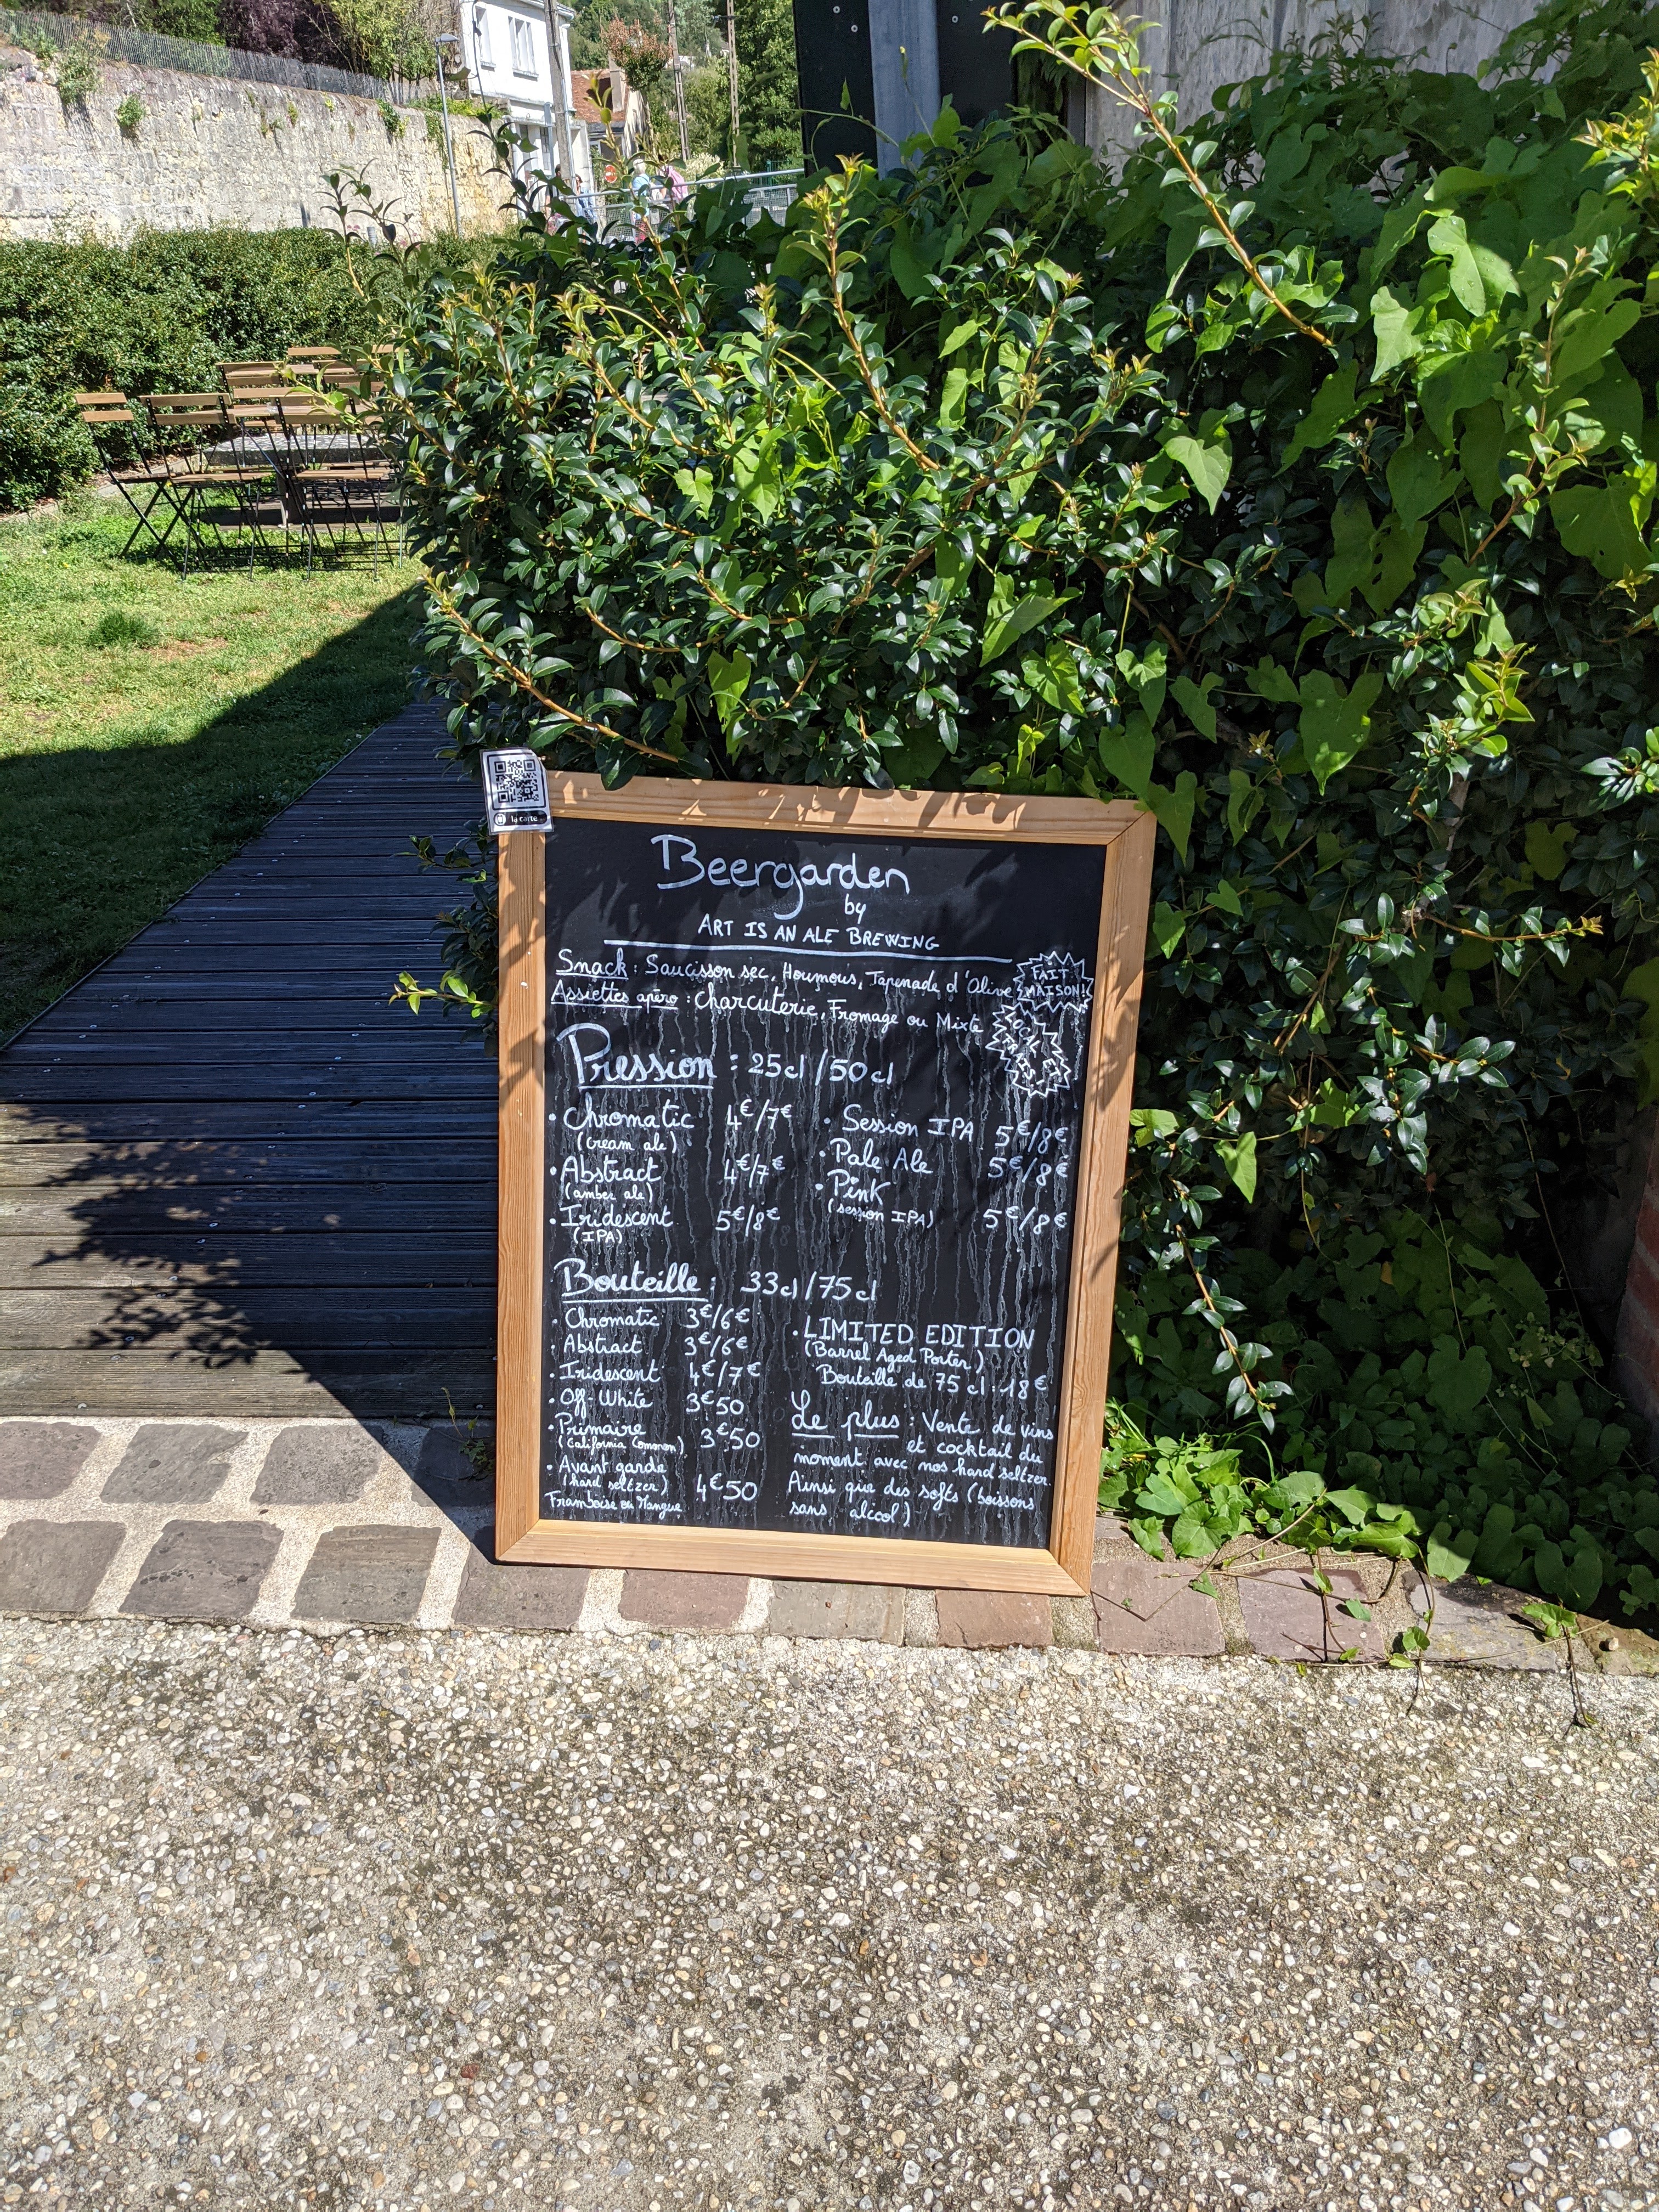 la carte
Beergarden
by
ART IS AN ALE BREWING
Snack : Saucisson sec, Houmous, Tapenade d'Olive
FAIT
MAISON!
Assiettes apéro : Charcuterie, Fromage ou Mixte
Pression : 25cl/50cl
• Chromatic 4€/7€
(cream ale)
• Abstract 4€/7€
(amber ale)
• Iridescent 5€/8€
(IPA)
• Session IPA 5€/8€
• Pale Ale 5€/8€
• Pink
(session IPA) 5€/8€
Bouteille : 33cl/75cl
• Chromatic 3€/6€
• Abstract 3€/6€
• Iridescent 4€/7€
• Off-White 3€50
• Primaire
(California Common) 3€50
• Avant garde
(hard seltzer) 4€50
Framboise ou Mangue
• LIMITED EDITION
(Barrel Aged Porter)
Bouteille de 75cl : 18€
Le plus : Vente de vins
et cocktail du
moment avec nos hard seltzer.
Ainsi que des softs (boissons
sans alcool)